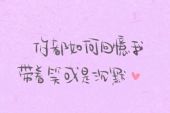 你都如何回憶我
帶着笑或是沉默